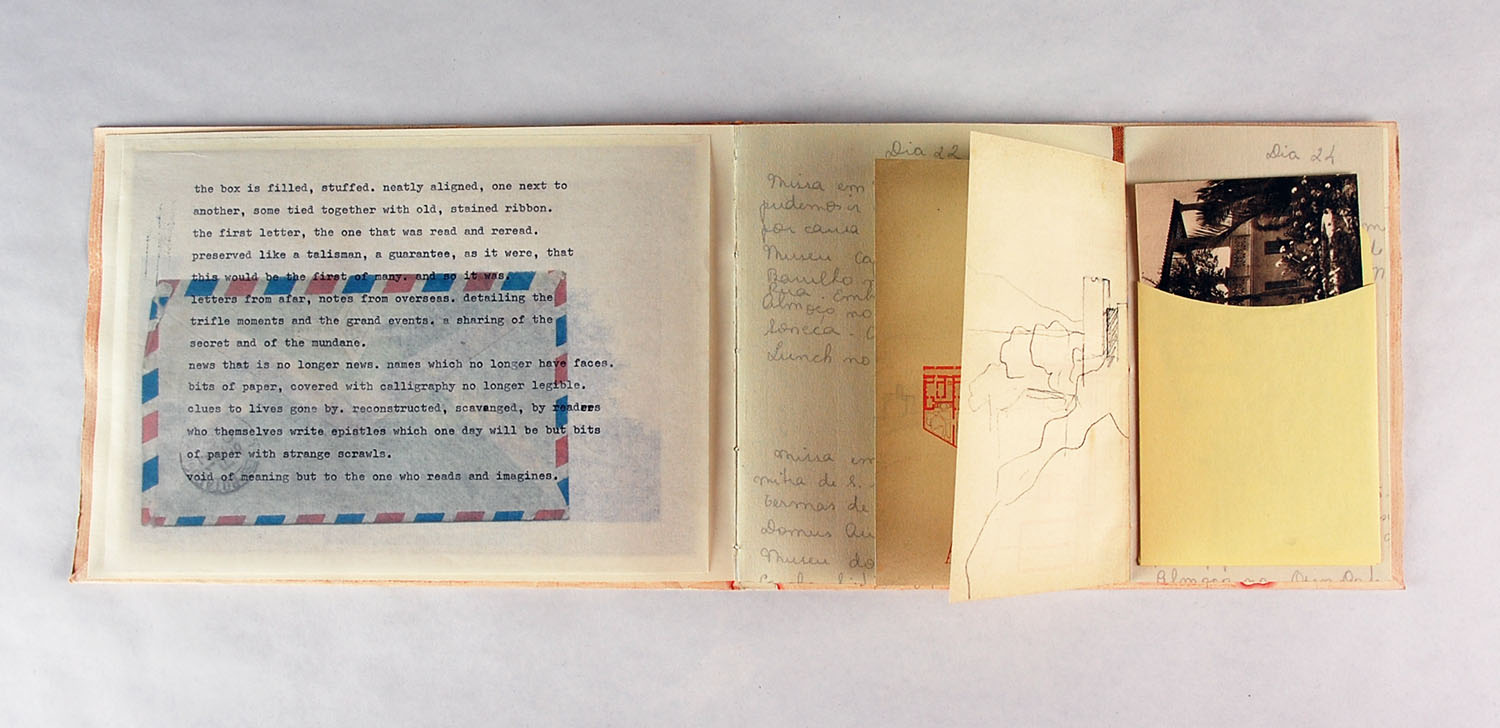 the box is filled, stuffed. neatly aligned, one next to
another, some tied together with old, stained ribbon.
the first letter, the one that was read and reread.
preserved like a talisman, a guarantee, as it were, that
this would be the first of many. and so it was.
letters from afar, notes from overseas. detailing the
trifle moments and the grand events. a sharing of the
secret and of the mundane.
news that is no longer news. names which no longer have faces.
bits of paper, covered with calligraphy no longer legible.
clues to lives gone by. reconstructed, scavanged, by readers
who themselves write epistles which one day will be but bits
of paper with strange scrawls.
void of meaning but to the one who reads and imagines.
Dia 22
Missa em
pudemos ir
por causa
Museu Ca
Barulho
Rua. Emb
Almoço no
soneca.
Lunch no
missa em
mitra de S.
termas de
Domus Au
Museu do
Dia 24